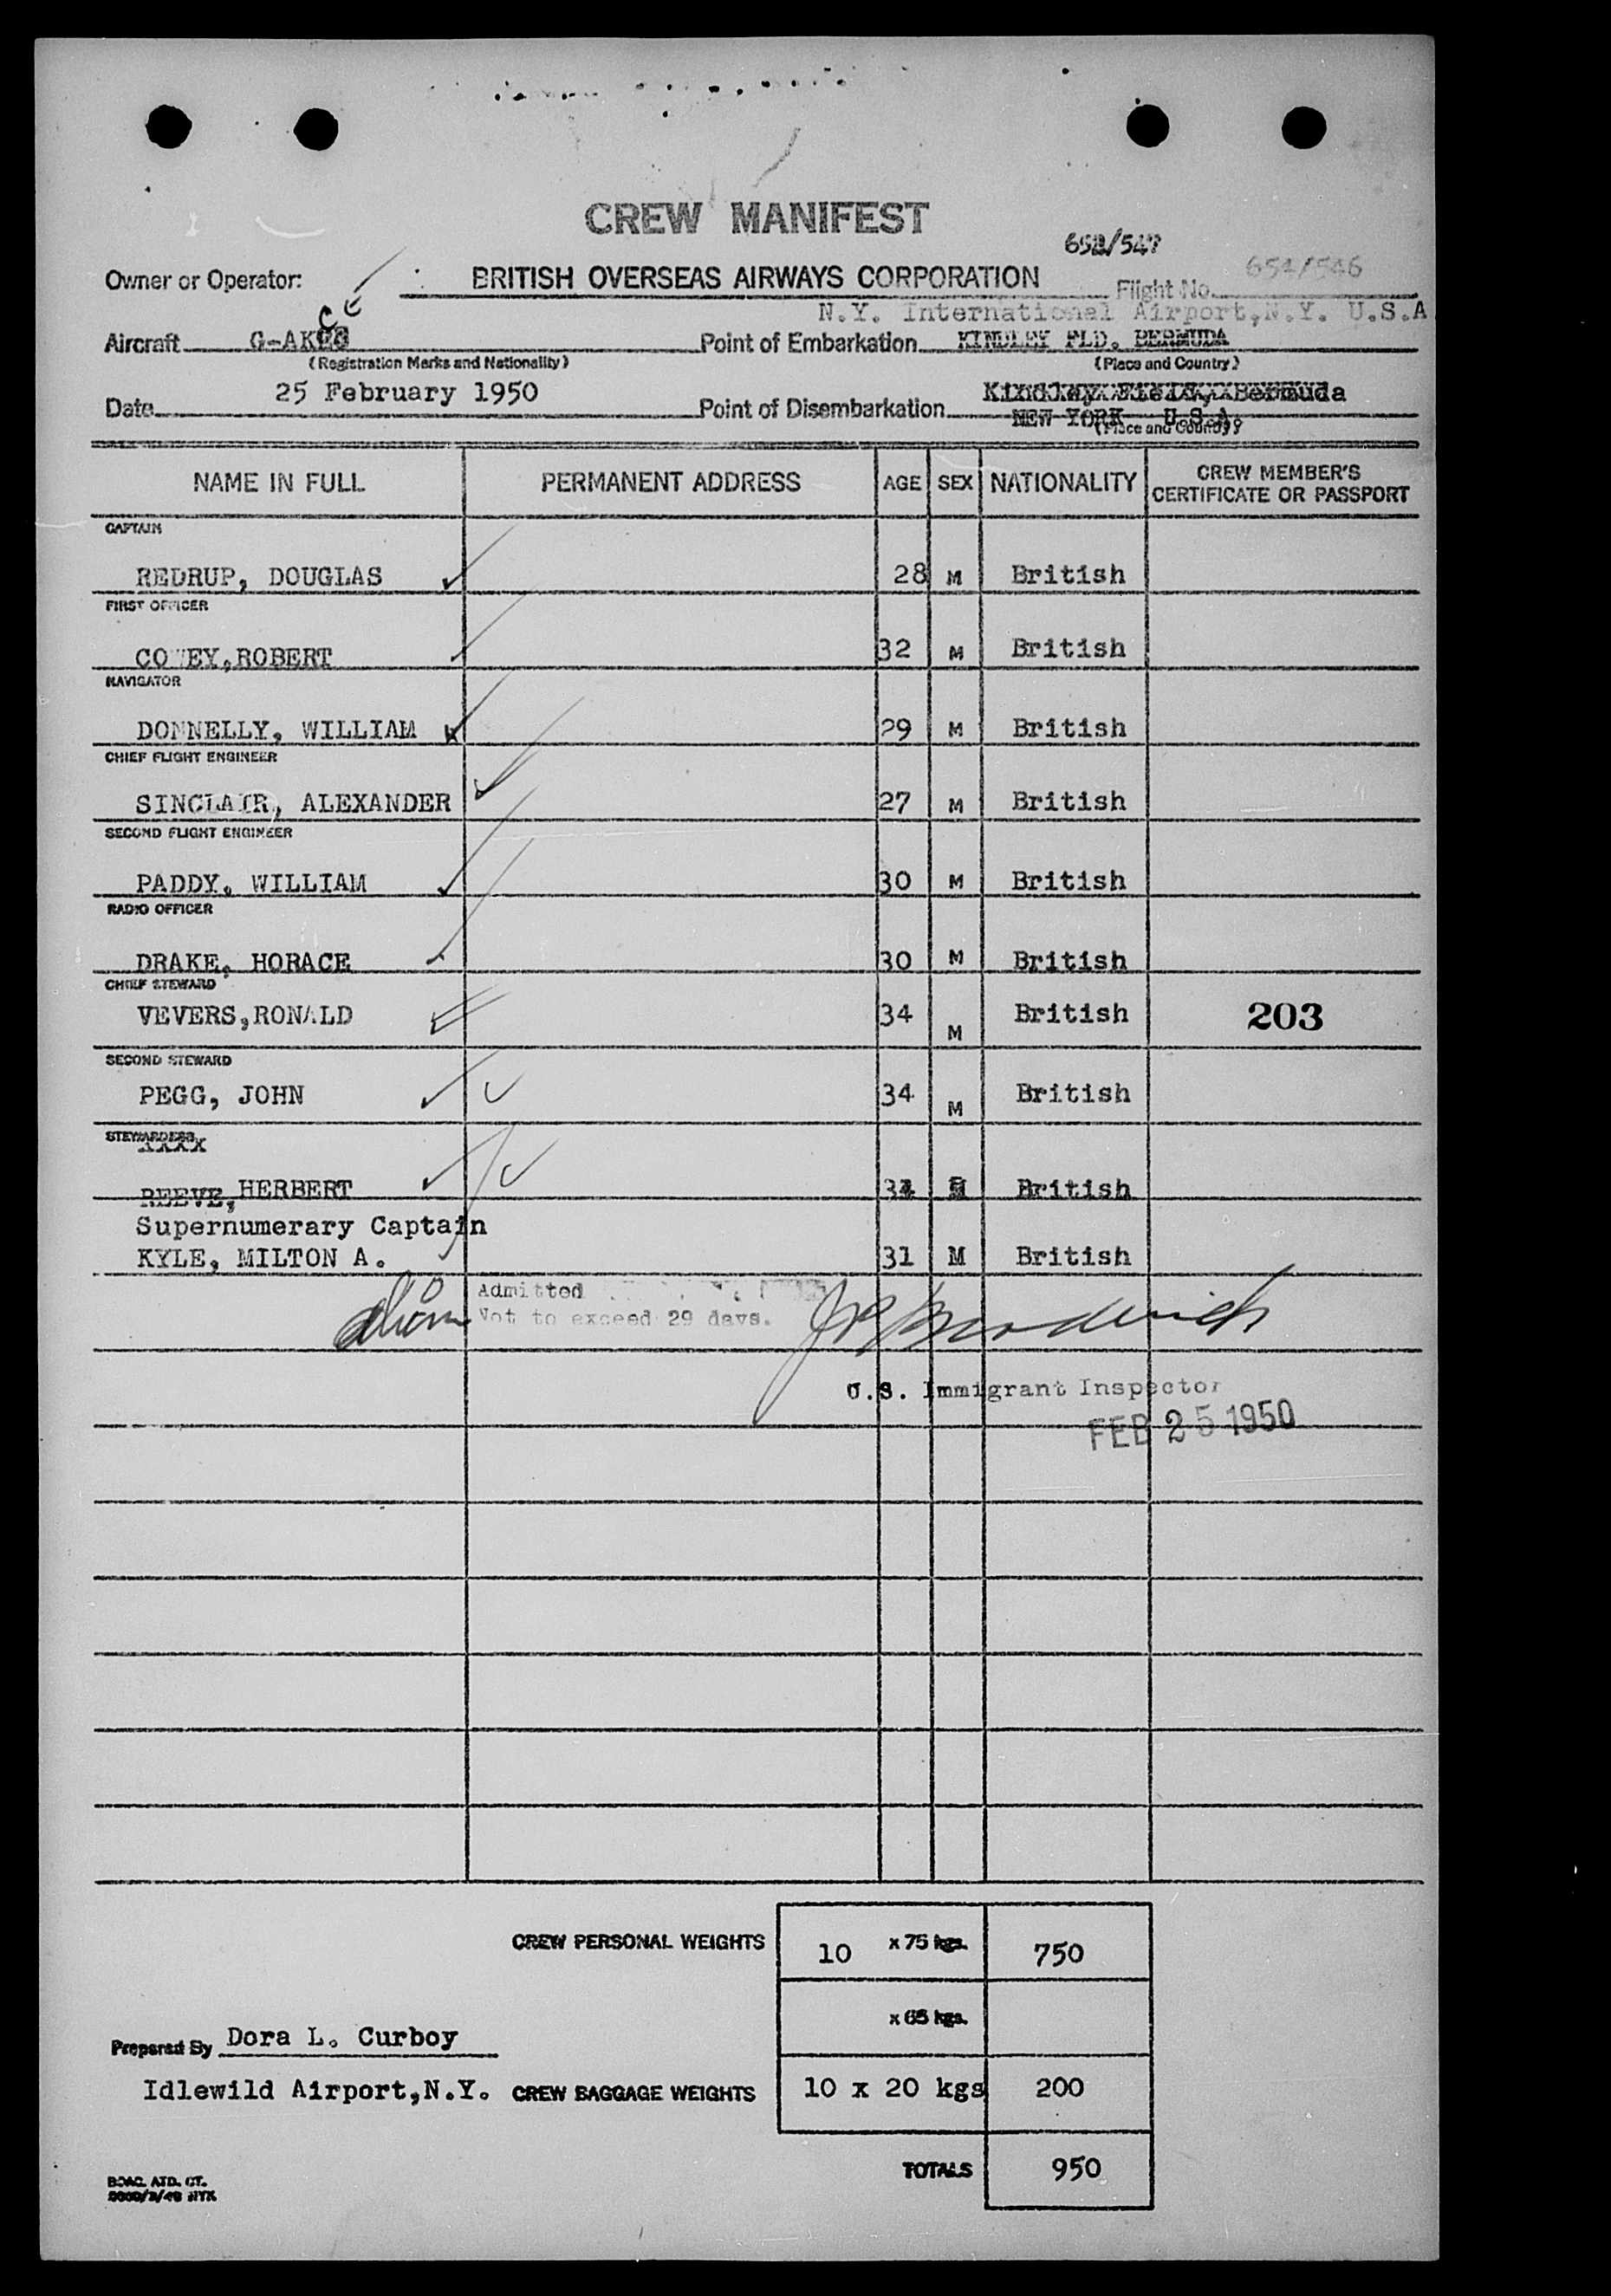 CREW MANIFEST
652/547
Owner or Operator: BRITISH OVERSEAS AIRWAYS CORPORATION Flight No. 654/546
N.Y. International Airport, N.Y. U.S.A
Aircraft G-AK Point of Embarkation KINDLEY FLD. BERMUDA
(Registration Marks and Nationality) (Place and Country)
Date 25 February 1950 Point of Disembarkation Kindley Field, Bermuda
NEW YORK U.S.A.
(Place and Country)
NAME IN FULL PERMANENT ADDRESS AGE SEX NATIONALITY CREW MEMBER'S CERTIFICATE OR PASSPORT
CAPTAIN
REDRUP, DOUGLAS 28 M British
FIRST OFFICER
CO EY,ROBERT 32 M British
NAVIGATOR
DONNELLY, WILLIAM 29 M British
CHIEF FLIGHT ENGINEER
SINCLAIR, ALEXANDER 27 M British
SECOND FLIGHT ENGINEER
PADDY, WILLIAM 30 M British
RADIO OFFICER
DRAKE, HORACE 30 M British
CHIEF STEWARD
VEVERS,RONALD 34 M British 203
SECOND STEWARD
PEGG, JOHN 34 M British
STEWARDESS
XXXX
REEVE, HERBERT British
Supernumerary Captain
KYLE, MILTON A. 31 M British
Admitted
Not to exceed 29 days.
U.S. Immigrant Inspector
FEB 25 1950
CREW PERSONAL WEIGHTS 10 x 75 kgs. 750
x 65 kgs.
Prepared By Dora L. Curboy
Idlewild Airport,N.Y. CREW BAGGAGE WEIGHTS 10 x 20 kgs 200
TOTALS 950
BOAC. ATD. CT.
NYK